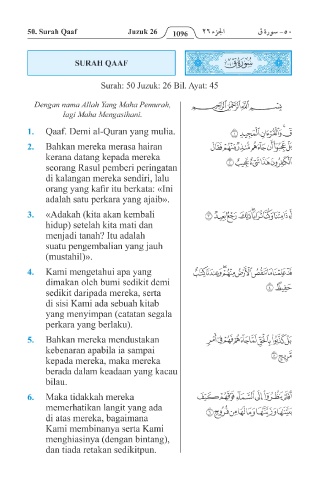 50. Surah Qaaf Juzuk 26 1096 الجزء ٢٦ ٥٠ – سورة ق
SURAH QAAF سورة ق
Surah: 50 Juzuk: 26 Bil. Ayat: 45
Dengan nama Allah Yang Maha Pemurah, بسم الله الرحمن الرحيم
lagi Maha Mengasihani.
1. Qaaf. Demi al-Quran yang mulia. قٓ وَٱلْقُرْءَانِ ٱلْمَجِيدِ ١
2. Bahkan mereka merasa hairan بَلْ عَجِبُوٓا۟ أَن جَآءَهُم مُّنذِرٌ مِّنْهُمْ فَقَالَ
kerana datang kepada mereka
seorang Rasul pemberi peringatan ٱلْكَٰفِرُونَ هَٰذَا شَىْءٌ عَجِيبٌ ٢
di kalangan mereka sendiri, lalu
orang yang kafir itu berkata: «Ini
adalah satu perkara yang ajaib».
3. «Adakah (kita akan kembali أَءِذَا مِتْنَا وَكُنَّا تُرَابًا ذَٰلِكَ رَجْعٌۢ بَعِيدٌ ٣
hidup) setelah kita mati dan
menjadi tanah? Itu adalah
suatu pengembalian yang jauh
(mustahil)».
4. Kami mengetahui apa yang قَدْ عَلِمْنَا مَا تَنقُصُ ٱلْأَرْضُ مِنْهُمْ وَعِندَنَا كِتَٰبٌ
dimakan oleh bumi sedikit demi
sedikit daripada mereka, serta حَفِيظٌۢ ٤
di sisi Kami ada sebuah kitab
yang menyimpan (catatan segala
perkara yang berlaku).
5. Bahkan mereka mendustakan بَلْ كَذَّبُوا۟ بِٱلْحَقِّ لَمَّا جَآءَهُمْ فَهُمْ فِىٓ أَمْرٍ
kebenaran apabila ia sampai
kepada mereka, maka mereka مَّرِيجٍ ٥
berada dalam keadaan yang kacau
bilau.
6. Maka tidakkah mereka أَفَلَمْ يَنظُرُوٓا۟ إِلَى ٱلسَّمَآءِ فَوْقَهُمْ كَيْفَ
memerhatikan langit yang ada
di atas mereka, bagaimana بَنَيْنَٰهَا وَزَيَّنَّٰهَا وَمَا لَهَا مِن فُرُوجٍ ٦
Kami membinanya serta Kami
menghiasinya (dengan bintang),
dan tiada retakan sedikitpun.